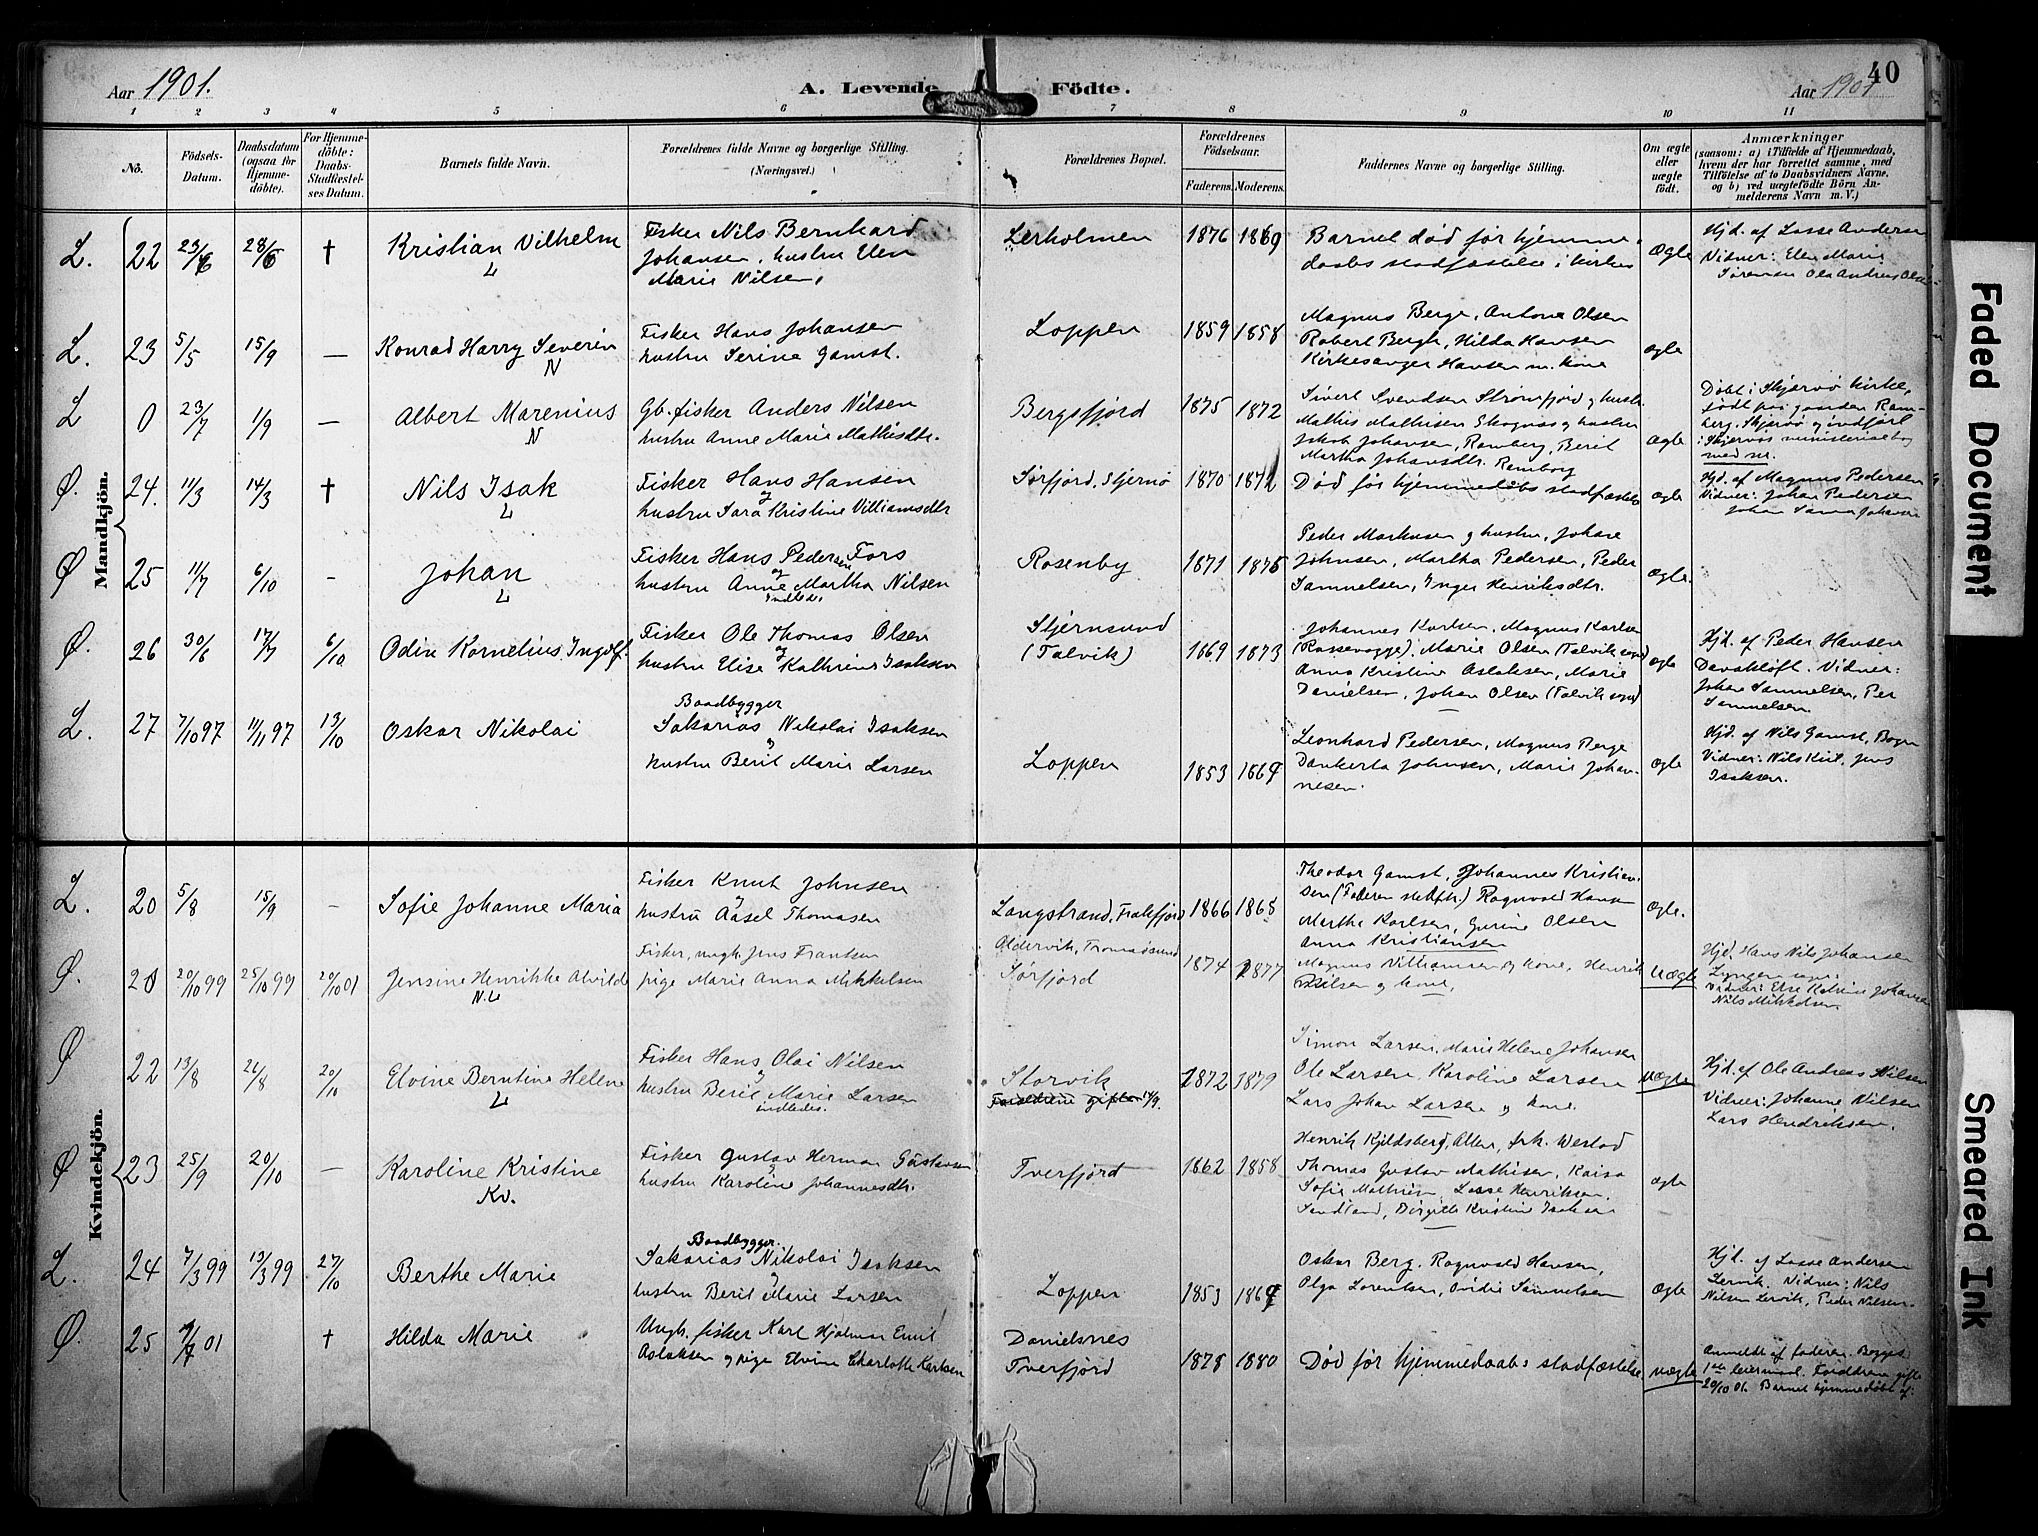 Aar 1901. A. Levende Födte. Aar 1901 40
1 2 3 4 5 6 7 8 9 10 11
No.
Födsels-
Datum.
Daabsdatum
(ogsaa for
Hjemme-
döbte).
For Hjemme-
döbte:
Daabs-
Stadfæstel-
ses Datum.
Barnets fulde Navn.
Forældrenes fulde Navne og borgerlige Stilling.
(Næringsvei.)
Forældrenes Bopæl.
Forældrenes
Födselsaar.
Faderens. Moderens.
Faddernes Navne og borgerlige Stilling.
Om ægte
eller
uægte
födt.
Anmærkninger
(saasom: a) i Tilfælde af Hjemmedaab,
hvem der har forrettet samme, med
Tilföielse af to Daabsvidners Navne,
og b) ved uægtefödte Börn An-
melderens Navn m. V.)
Mandkjön.
L. 22 23/6 28/6 † Kristian Vilhelm
L
Fisker Nils Bernhard
Johansen, hustru Elen
Marie Nilsen,
Lerholmen 1876 1869
Barnet død før hjemme-
daabs stadfæstelse i kirken
Ægte
Hjd. af Lasse Andersen
Vidner: Elen Marie
Sørensen Ola Andreas Olsen
L. 23 5/5 15/9 — Konrad Harry Severin
N
Fisker Hans Johansen
hustru Serine Gamst.
Loppen 1859 1858
Magnus Berge, Antone Olsen
Robert Bergh, Hilda Hansen
Kirkesanger Hansen m. kone
ægte
L 0 23/7 1/9 — Albert Marenius
N
Gb. fisker Anders Nilsen
hustru Anne Marie Mathisdtr.
Bergsfjord 1875 1872
Sivert Svendsen Strømfjord og hustr.
Mathis Mathisen Skognes og hustru
Jakob Johansen, Ramberg, Berit
Martha Johansdtr. Ramberg
Ægte
Døbt i Skjervø kirke,
født paa gaarden Ram-
berg, Skjervø og indført
i Skjervøs ministerialbog
med nr.
Ø. 24. 11/3 14/3 † Nils Isak
L
Fisker Hans Hansen
og
hustru Sara Kristine Villiamsdtr
Sørfjord, Stjernø 1870 1872
Død før hjemmedøbs stadfæstelse
Ægte
Hjd. af Magnus Pedersen
Vidner: Johan Pedersen
Johan Johansen
Ø 25 11/7 6/10 - Johan
L
Fisker Hans Pedersen Fors
og
hustru Anne Martha Nilsen
indledes.
Rosenby 1871 1876
Peder Markusen og hustru, Johan
Johnsen, Martha Pedersen, Peder
Samuelsen, Inger Henriksdtr.
Ægte.
Ø. 26 30/6 17/7 6/10 Odin Kornelius Ingolf.
Fisker Ole Thomas Olsen
og
hustru Elise Kathrine Isaksen
Stjernsund
(Talvik) 1869 1873
Johannes Karlsen, Magnus Karlsen
(Rossevogge), Marie Olsen (Talvik sogn)
Anna Kristine Aslaksen, Marie
Danielsen, Johan Olsen (Talvik sogn)
ægte
Hjd. af Peder Hansen
Davskløft. Vidner:
Johan Samuelsen, Per
Samuelsen.
L. 27 7/10 97 11/11 97 13/10 Oskar Nikolai
Baadbygger
Sakarias Nikolai Isaksen
og
hustru Berit Marie Larsen
Loppen 1853 1869
Leonhard Pedersen, Magnus Berge
Dankerta Johnsen, Marie Johan-
nesen.
Ægte
Hjd. af Nils Gamst, Bogn
Vidner: Nils Kvit, Jens
Isaksen.
Kvindekjön.
L. 20 5/8 15/9 — Sofie Johanne Maria
Fisker Knut Johnsen
og
hustru Aasel Thomasen
Langstrand, Frakfjord 1866 1865
Theodor Gamst, Johannes Kristian-
sen (Faderen) Ragnvald Hansen
Martha Karlsen, Gurine Olsen
Anna Kristiansen
Ægte.
Ø. 21 20/10 99 25/10 99 20/10 01 Jensine Henrikke Alvilde
N.L
Fisker, ungk. Jens Frantsen
pige Marie Anna Mikkelsen
Oldervik, Tromsøsund
Sørfjord 1874 1877
Magnus Villiamsen og kone, Henrik
Nilsen og kone,
Uægte
Hjd. Hans Nils Johansen
Lyngen sogn:
Vidner: Else Katrine Johansen
Nils Mikkelsen.
Ø 22 13/8 26/8 20/10 Elvine Berntine Helene
L
Fisker Hans Olai Nilsen
og
hustru Berit Marie Larsen
indledes.
Storvik 1872 1879
Forældrene gifte 14/9.
Simon Larsen, Marie Helene Johansen
Ole Larsen, Karoline Larsen
Lars Johan Larsen og kone.
uægte
Hjd. af Ole Andreas Nilsen
Vidner: Johanne Nilsen
Lars Hendriksen.
Ø 23 25/9 20/10 — Karoline Kristine
Kv.
Fisker Gustav Herman Gustavsen
og
hustru Karoline Johannesdtr.
Tverfjord 1862 1858
Henrik Kjeldsberg, Alten, frk. Westad
Thomas Gustav Mathisen, Kaisa
Sofie Mathisen, Lasse Henriksen,
Sandland, Birgitte Kristine Isaksen
ægte
L. 24 7/3 99 13/3 99 27/10 Berthe Marie
Baadbygger.
Sakarias Nikolai Isaksen
og
hustru Berit Marie Larsen
Loppen 1853 1869
Oskar Berg, Ragnvald Hansen,
Olga Lorentsen, Ovidie Samuelsen
Ægte
Hjd. af Lasse Andersen
Lervik. Vidner: Nils
Nilsen Lervik, Peder Nilsen.
Ø. 25 7/7 01 † Hilda Marie
Ungk. fisker Karl Hjalmar Emil
Aslaksen og pige Elvine Charlotte Karlsen
Danielsnes
Tverfjord 1878 1880
Død før hjemmedaabs stadfæstelse
uægte
Anmeldt af faderen. Begges
1ste leiermaal. Forældrene gifte
20/10 01. Barnet hjemmedøbt af:
Faded Document
Smeared Ink